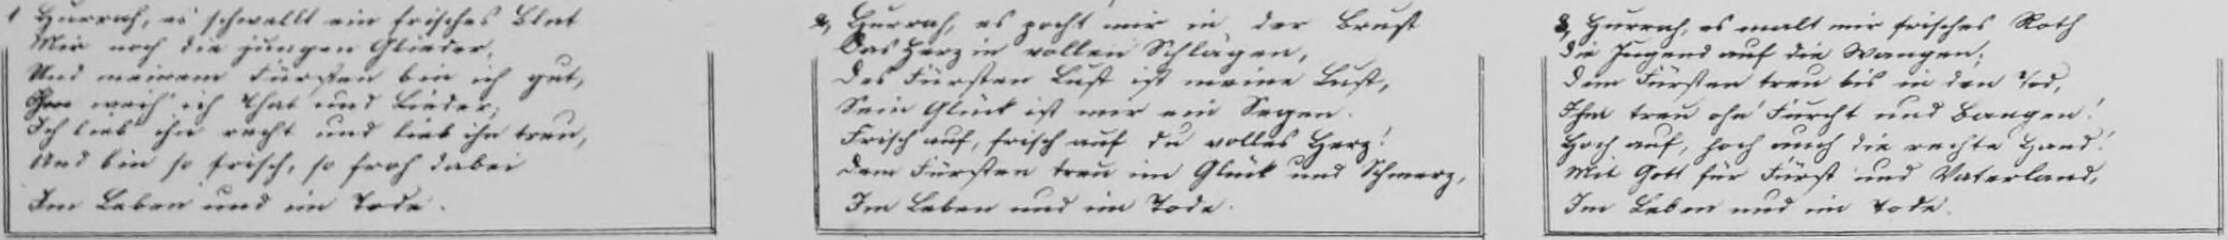 1 Hurrah, es schwellt ein frisches Blut
Mir noch die jungen Glieder,
Und meinem Fürsten bin ich gut,
Ihm weih' ich That und Lieder;
Ich lieb' ihn recht und lieb ihn treu,
Und bin so frisch, so froh dabei
Im Leben und im Tode.
2, Hurrah, es pocht mir in der Brust
Das Herz in vollen Schlägen,
Des Fürsten Lust ist meine Lust,
Sein Glück ist mir ein Segen.
Frisch auf, frisch auf du volles Herz!
Dem Fürsten treu im Glück und Schmerz,
Im Leben und im Tode.
3, Hurrah, es malt mir frisches Roth
Die Jugend auf die Wangen;
Dem Fürsten treu bis in den Tod,
Ihm treu ohn' Furcht und Bangen!
Hoch auf, hoch auch die rechte Hand!
Mit Gott für Fürst und Vaterland,
Im Leben und im Tode.